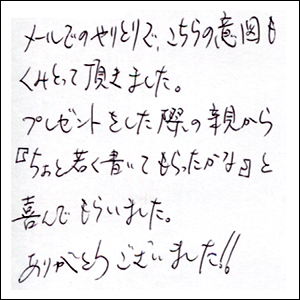 メールでのやりとりで、こちらの意図も
くみとって頂きました。
プレゼントをした際の親から
『ちょと若く書いてもらったかな』と
喜んでもらいました。
ありがとうございました!!